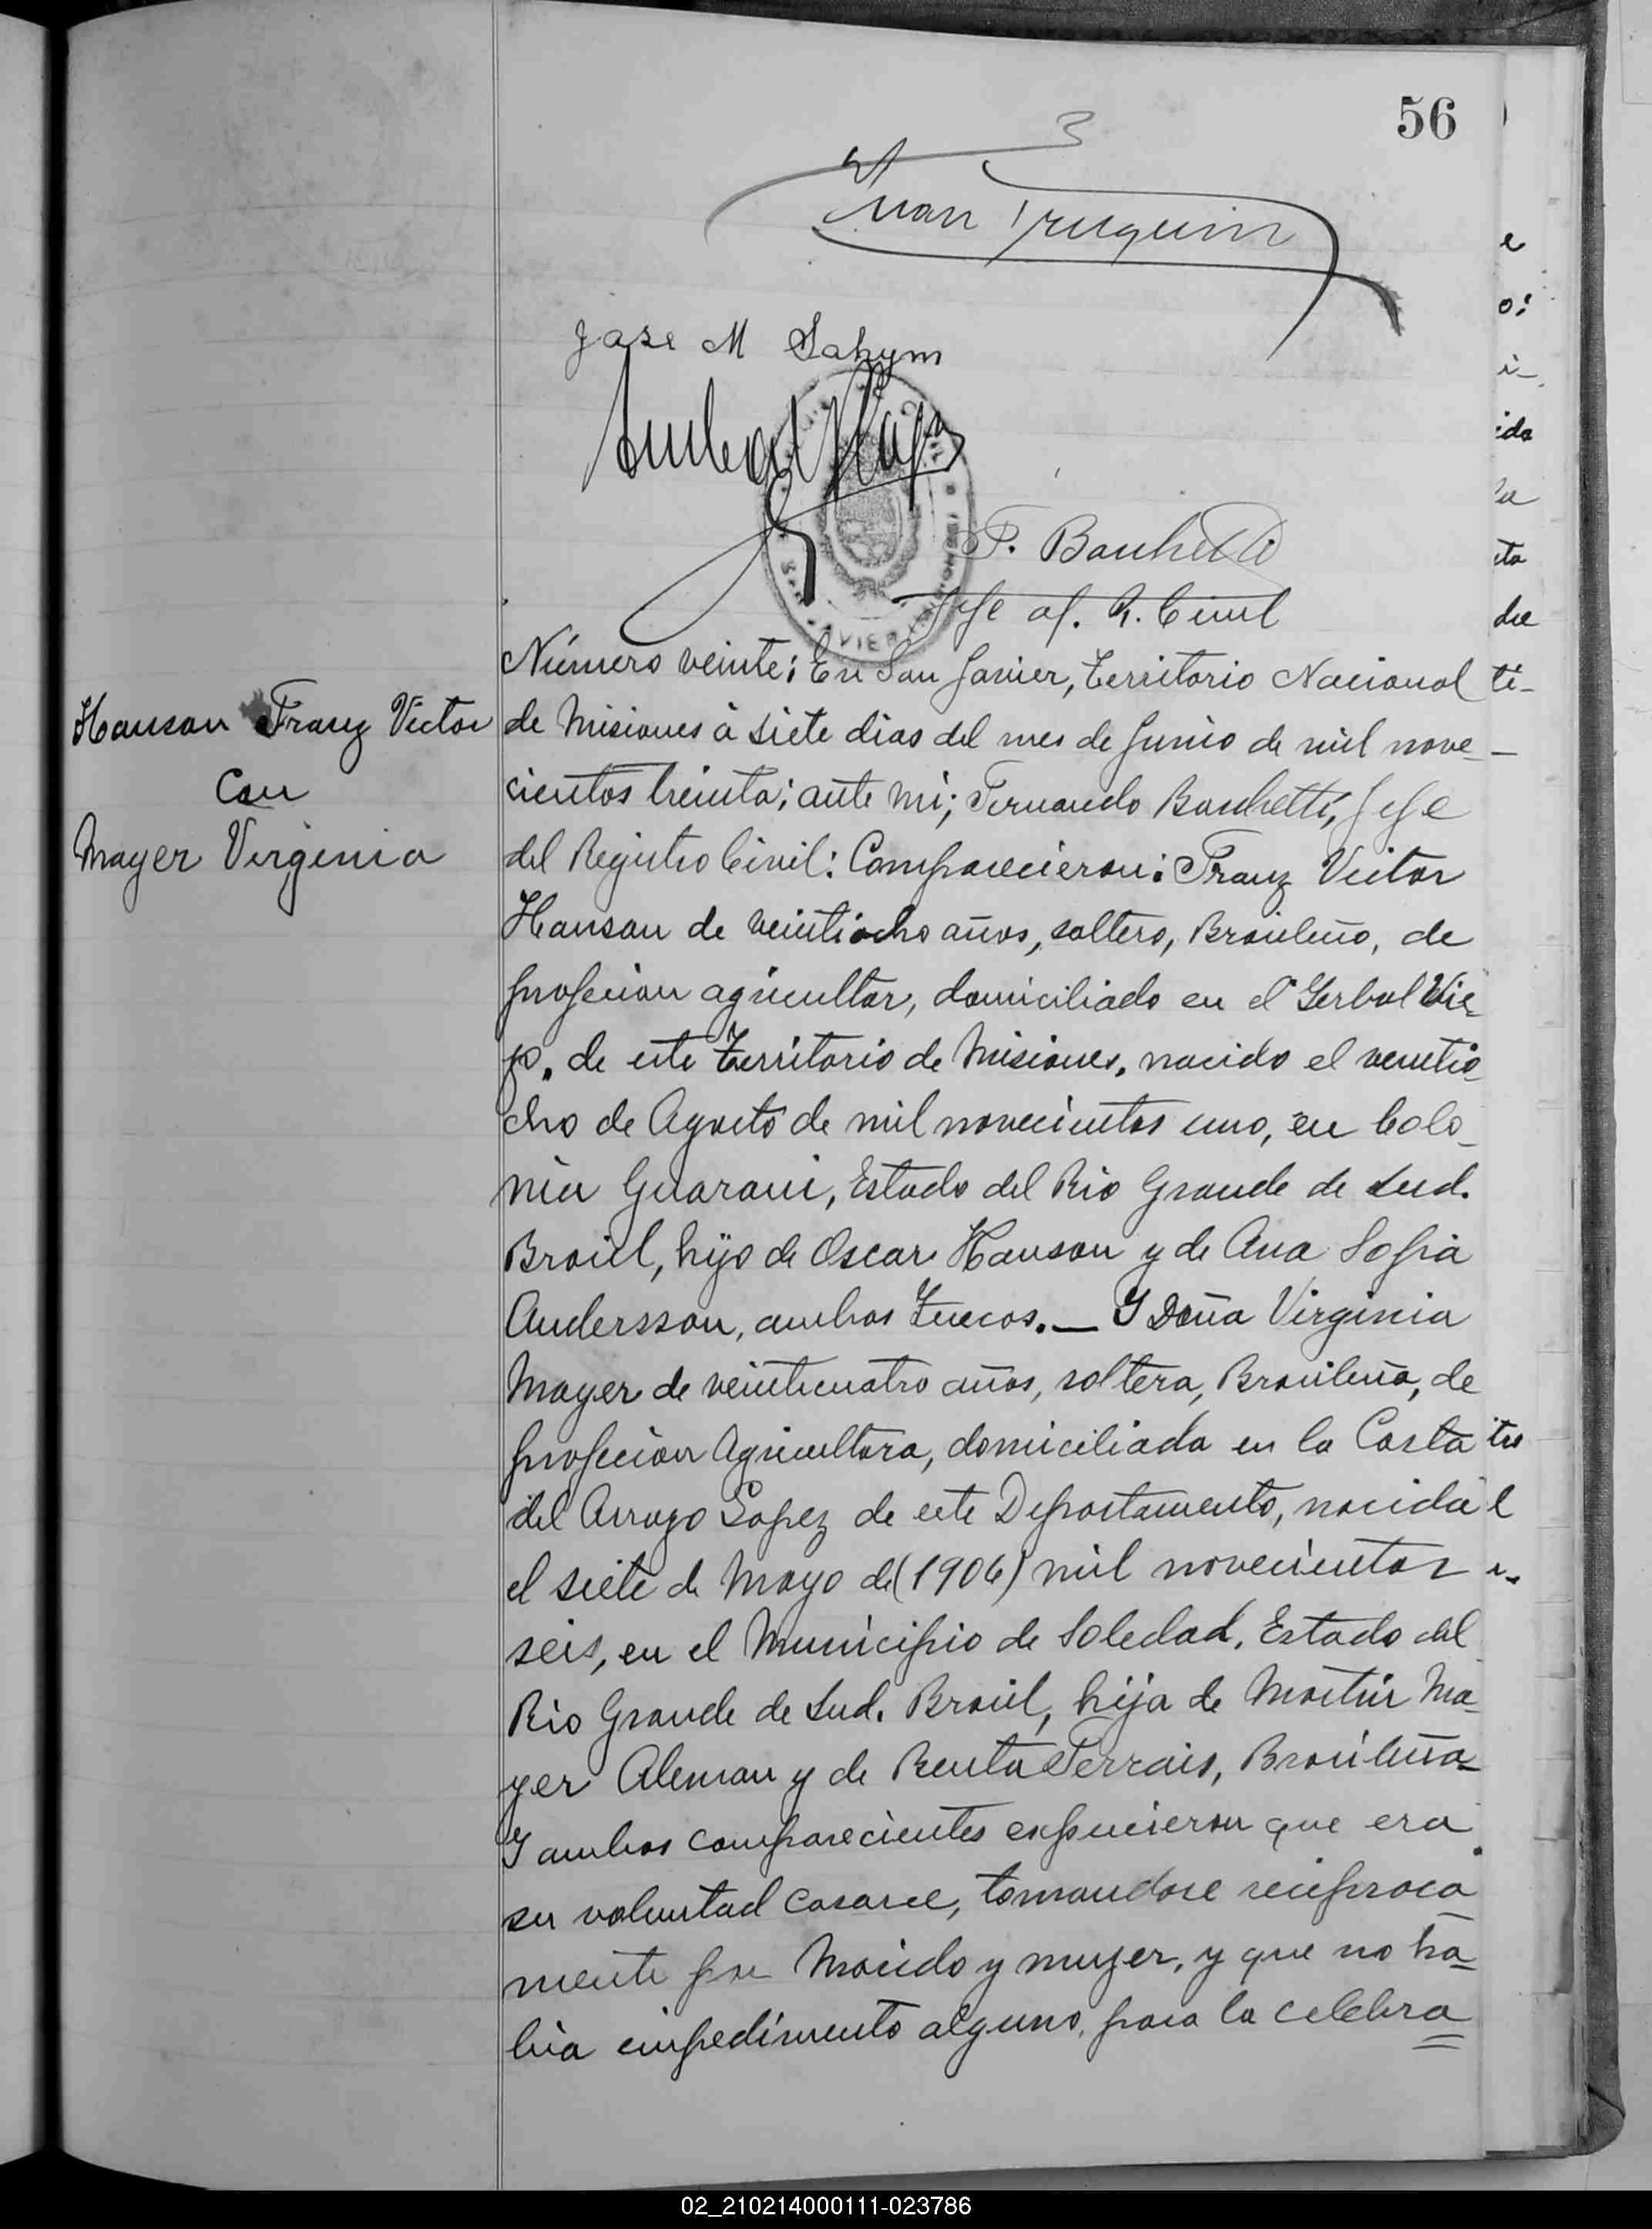 56
Juan Truquin
Jose M Sahym
F. Banchetti
Jefe of. R. Civil
Hanson Franz Victor
con
Mayer Virginia
Número veinte: En San Javier, Territorio Nacional
de Misiones á siete dias del mes de Junio de mil nove_
cientos treinta; ante mi; Fernando Banchetti, Jefe
del Registro Civil: Comparecieron: Franz Victor
Hanson de veintiocho años, soltero, Brasileño, de
profecion agricultor, domiciliado en el "Yerbal Vie_
jo" de este Territorio de Misiones, nacido el veintio_
cho de Agosto de mil novecientos uno, en Colo_
nia Guarani, Estado del Rio Grande de Sud.
Brasil, hijo de Oscar Hanson y de Ana Sofia
Andersson, ambos Suecos._ Y Doña Virginia
Mayer de veinticuatro años, soltera, Brasileña, de
profecion Agricultora, domiciliada en la Costa
del Arroyo Lopez de este Departamento, nacida
el siete de Mayo de (1906) mil novecientos
seis, en el Municipio de Soledad, Estado del
Rio Grande de Sud. Brasil, hija de Martin Ma_
yer Aleman y de Benta Ferrais, Brasileña_
Y ambos comparecientes expucieron que era
su voluntad casarce, tomandose reciproca
mente por Marido y mujer, y que no ha_
bia empedimento alguno, para la celebra
02_210214000111-023786